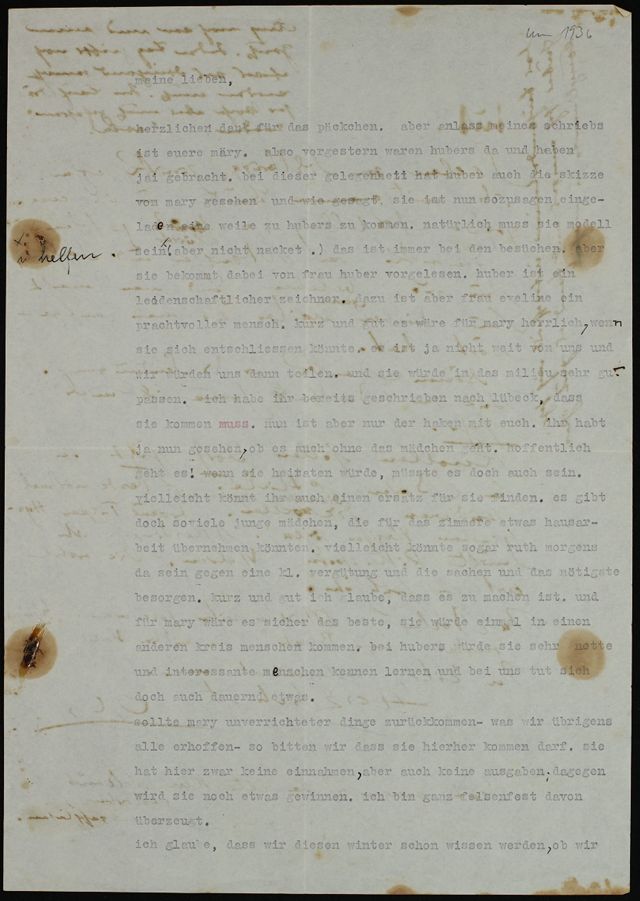 um 1936
meine lieben,
herzlichen dank für das päckchen. aber anlass meines schriebs
ist euere märy. also vorgestern waren hubers da und haben
jai gebracht. bei dieser gelegenheit hat huber auch die skizze
von mary gesehen und wie gesagt. sie ist nun sozusagen einge-
laden eine weile zu hubers zu kommen. natürlich muss sie modell
sein(aber nicht nacket .) das ist immer bei den besüchen. aber
x helfen.
sie bekommt dabei von frau huber vorgelesen. huber ist ein
leidenschaftlicher zeichner. dazu ist aber frau eveline ein
prachtvoller mensch. kurz und gut es wäre für mary herrlich,wenn
sie sich entschliessen könnte. es ist ja nicht weit von uns und
wir würden uns dann teilen. und sie würde in das milieu sehr gut
passen. ich habe ihr bereits geschrieben nach lübeck, dass
sie kommen muss. nun ist aber nur der haken mit euch. ihr habt
ja nun gesehen,ob es auch ohne das mädchen geht. hoffentlich
geht es! wenn sie heiraten würde, müsste es doch auch sein.
vielleicht könnt ihr auch einen ersatz für sie finden. es gibt
doch soviele junge mädchen, die für das zimmere etwas hausar-
beit übernehmen könnten. vielleicht könnte sogar ruth morgens
da sein gegen eine kl. vergütung und die sachen und das nötigste
besorgen. kurz und gut ich glaube, dass es zu machen ist. und
für mary wäre es sicher das beste, sie würde einmal in einen
anderen kreis menschen kommen. bei hubers würde sie sehr nette
und interessante menschen kennen lernen und bei uns tut sich
doch auch dauernd etwas.
sollte mary unverrichteter dinge zurückkommen- was wir übrigens
alle erhoffen- so bitten wir dass sie hierher kommen darf. sie
hat hier zwar keine einnahmen,aber auch keine ausgaben;dagegen
wird sie noch etwas gewinnen. ich bin ganz felsenfest davon
überzeugt.
ich glaube, dass wir diesen winter schon wissen werden,ob wir